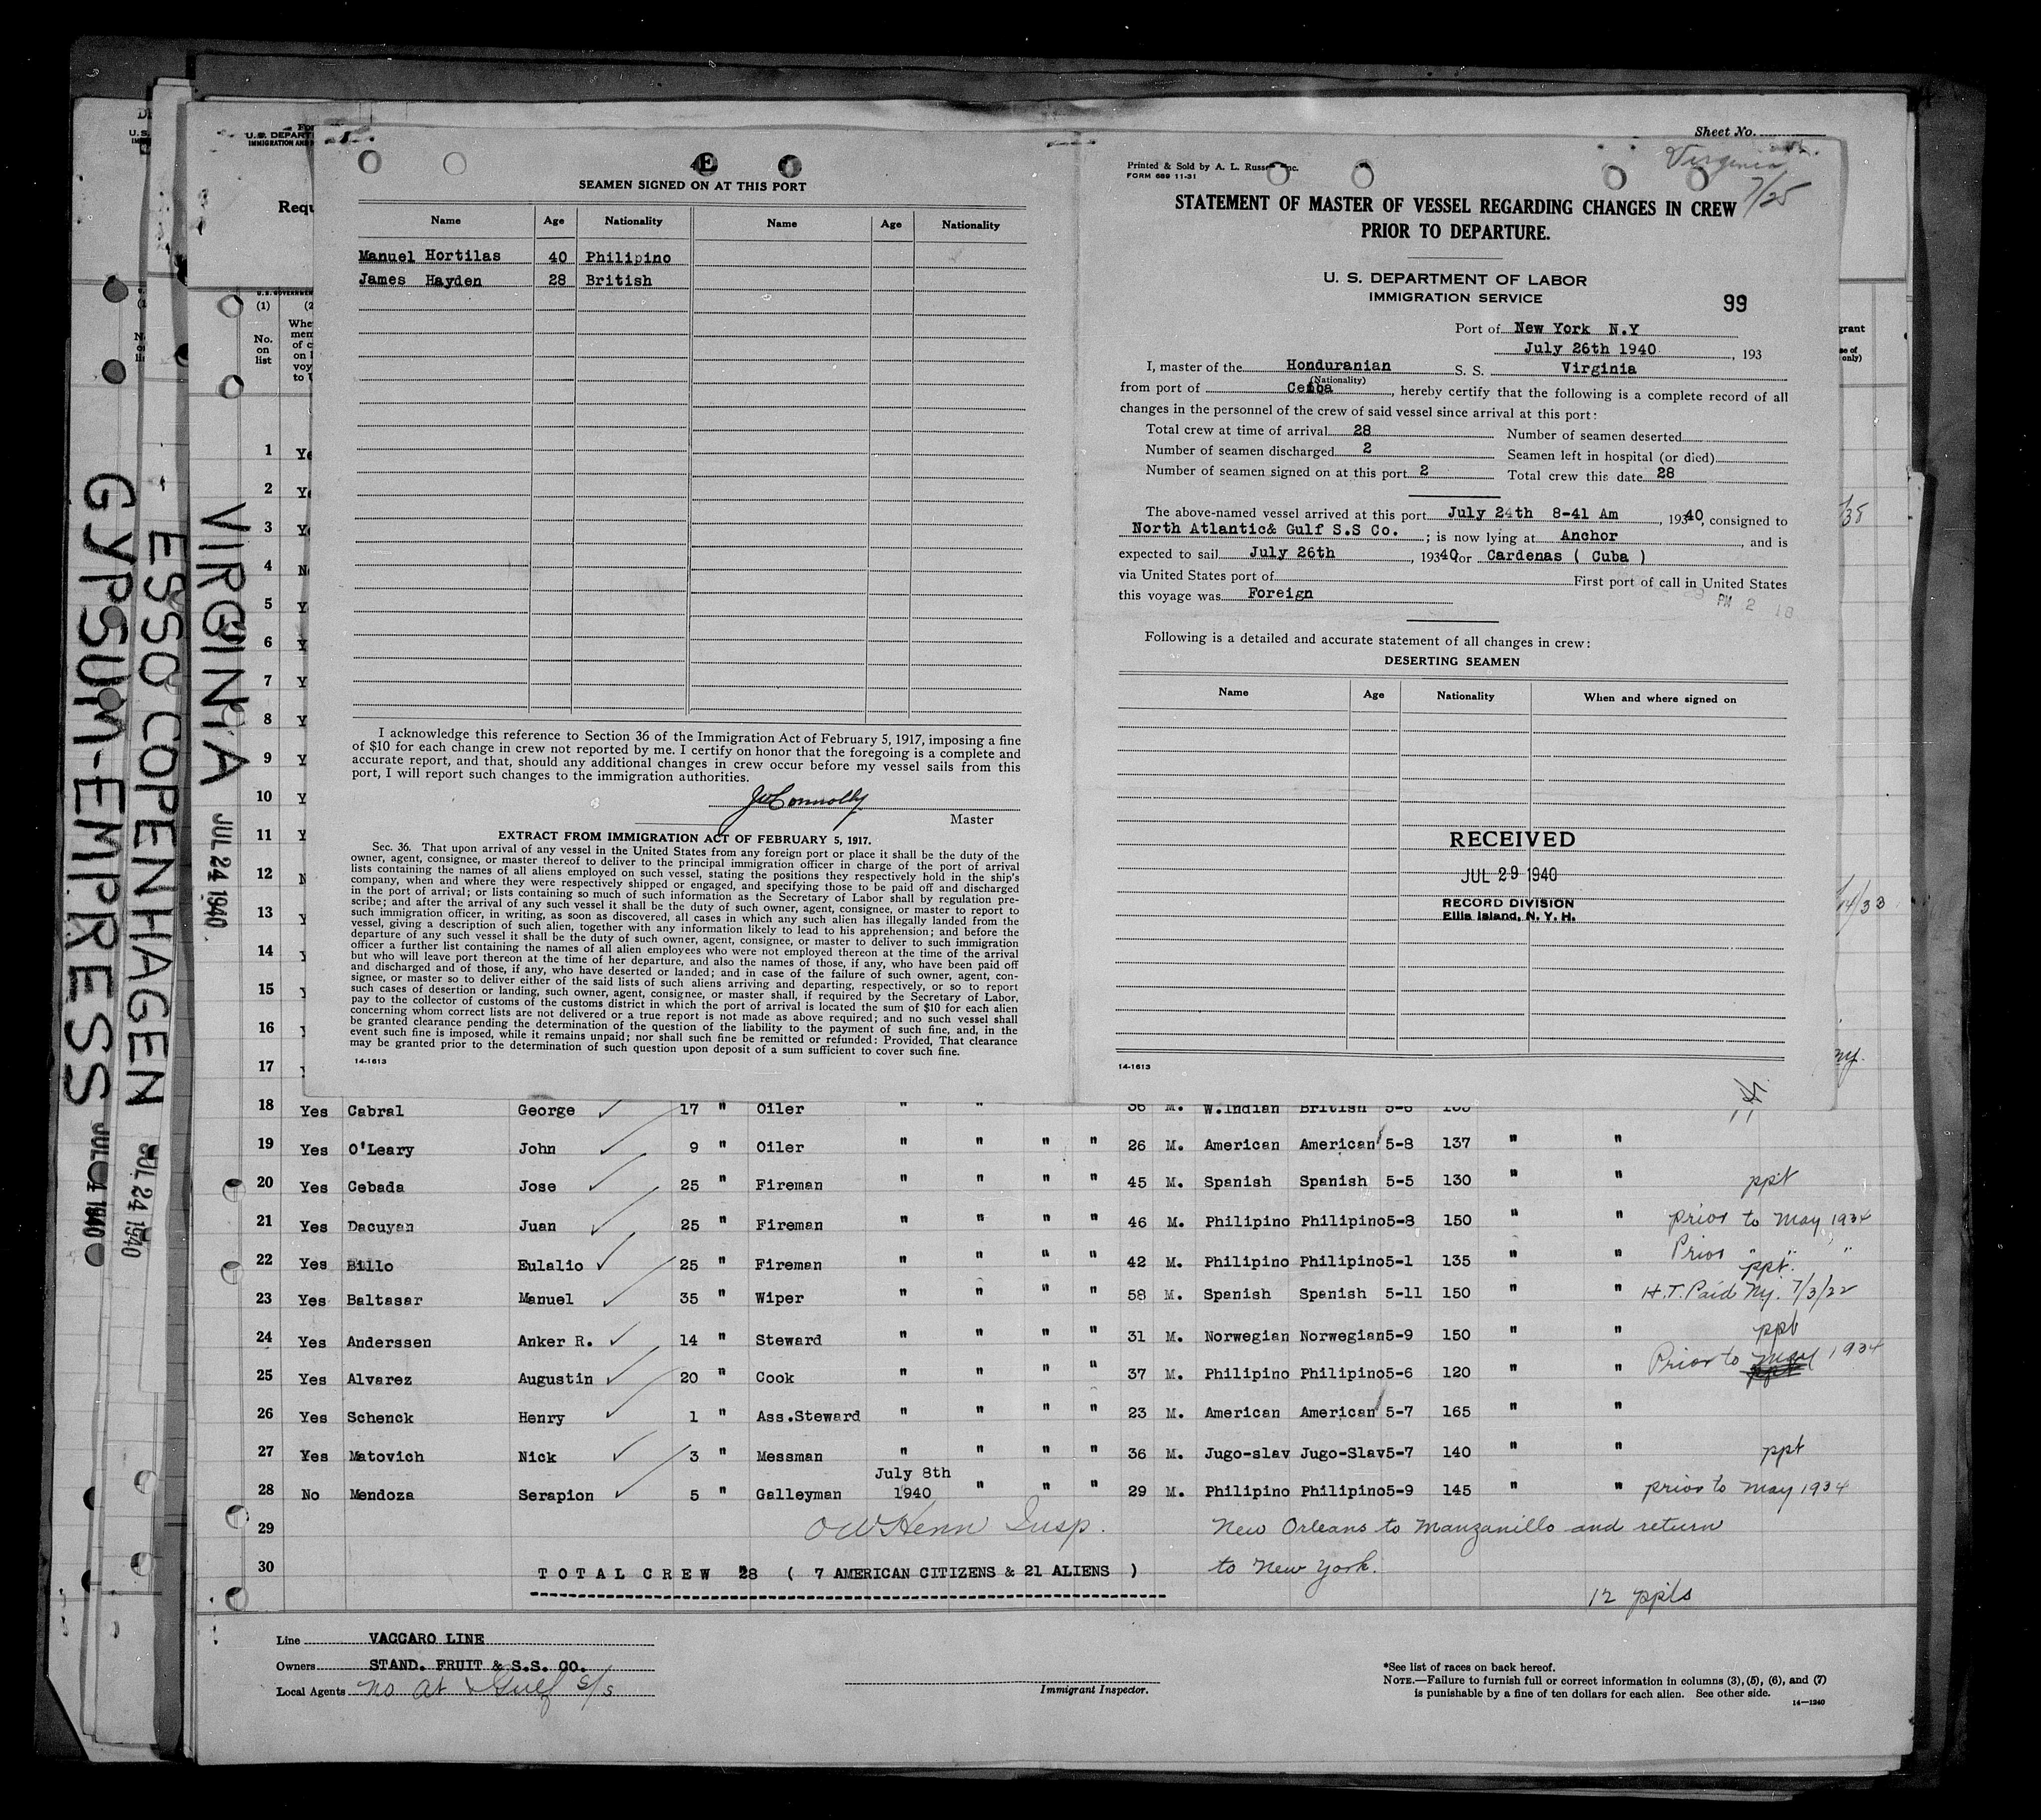 GYPSUM-EMPRESS JUL 24 1940
ESSO COPENHAGEN JUL 24 1940
VIRGINIA JUL 24 1940
U.S. DEPART
Requ
(1)
No.
on
list
Sheet No.
E
SEAMEN SIGNED ON AT THIS PORT
Name Age Nationality Name Age Nationality
Manuel Hortilas 40 Philipino
James Hayden 28 British
I acknowledge this reference to Section 36 of the Immigration Act of February 5, 1917, imposing a fine
of $10 for each change in crew not reported by me. I certify on honor that the foregoing is a complete and
accurate report, and that, should any additional changes in crew occur before my vessel sails from this
port, I will report such changes to the immigration authorities.
JWConnolly
Master
EXTRACT FROM IMMIGRATION ACT OF FEBRUARY 5, 1917.
Sec. 36. That upon arrival of any vessel in the United States from any foreign port or place it shall be the duty of the
owner, agent, consignee, or master thereof to deliver to the principal immigration officer in charge of the port of arrival
lists containing the names of all aliens employed on such vessel, stating the positions they respectively hold in the ship's
company, when and where they were respectively shipped or engaged, and specifying those to be paid off and discharged
in the port of arrival; or lists containing so much of such information as the Secretary of Labor shall by regulation pre-
scribe; and after the arrival of any such vessel it shall be the duty of such owner, agent, consignee, or master to report to
such immigration officer, in writing, as soon as discovered, all cases in which any such alien has illegally landed from the
vessel, giving a description of such alien, together with any information likely to lead to his apprehension; and before the
departure of any such vessel it shall be the duty of such owner, agent, consignee, or master to deliver to such immigration
officer a further list containing the names of all alien employees who were not employed thereon at the time of the arrival
but who will leave port thereon at the time of her departure, and also the names of those, if any, who have been paid off
and discharged and of those, if any, who have deserted or landed; and in case of the failure of such owner, agent, con-
signee, or master so to deliver either of the said lists of such aliens arriving and departing, respectively, or so to report
such cases of desertion or landing, such owner, agent, consignee, or master shall, if required by the Secretary of Labor,
pay to the collector of customs of the customs district in which the port of arrival is located the sum of $10 for each alien
concerning whom correct lists are not delivered or a true report is not made as above required; and no such vessel shall
be granted clearance pending the determination of the question of the liability to the payment of such fine, and, in the
event such fine is imposed, while it remains unpaid; nor shall such fine be remitted or refunded: Provided, That clearance
may be granted prior to the determination of such question upon deposit of a sum sufficient to cover such fine.
14-1613
Virginia
7/25
Printed & Sold by A. L. Russ nc.
FORM 689 11-31
STATEMENT OF MASTER OF VESSEL REGARDING CHANGES IN CREW
PRIOR TO DEPARTURE.
U. S. DEPARTMENT OF LABOR
IMMIGRATION SERVICE
99
Port of New York N.Y
July 26th 1940 , 193
I, master of the Honduranian S. S. Virginia
(Nationality)
from port of Ceiba , hereby certify that the following is a complete record of all
changes in the personnel of the crew of said vessel since arrival at this port:
Total crew at time of arrival 28 Number of seamen deserted
Number of seamen discharged 2 Seamen left in hospital (or died)
Number of seamen signed on at this port 2 Total crew this date 28
The above-named vessel arrived at this port July 24th 8-41 Am , 19340, consigned to
North Atlantic& Gulf S.S Co. ; is now lying at Anchor , and is
expected to sail July 26th , 19340for Cardenas ( Cuba )
via United States port of First port of call in United States
this voyage was Foreign
PM 2 18
Following is a detailed and accurate statement of all changes in crew:
DESERTING SEAMEN
Name Age Nationality When and where signed on
RECEIVED
JUL 29 1940
RECORD DIVISION
Ellis Island, N. Y. H.
14-1613
1
2
3
4
5
6
7
8
9
10
11
12
13
14
15
16
17
18 Yes Cabral George 17 " Oiler " " 36 M. W.Indian British 5-6
19 Yes O'Leary John 9 " Oiler " " " " 26 M. American American 5-8 137 " "
20 Yes Cebada Jose 25 " Fireman " " " " 45 M. Spanish Spanish 5-5 130 " " ppt
21 Yes Dacuyan Juan 25 " Fireman " " " " 46 M. Philipino Philipino5-8 150 " " prior to may 1934
22 Yes Billo Eulalio 25 " Fireman " " " " 42 M. Philipino Philipino5-1 135 " " Prior " " "
ppt.
23 Yes Baltasar Manuel 35 " Wiper " " " " 58 M. Spanish Spanish 5-11 150 " " H.T. Paid Ny. 7/3/22
24 Yes Anderssen Anker R. 14 " Steward " " " " 31 M. Norwegian Norwegian5-9 150 " " ppt
25 Yes Alvarez Augustin 20 " Cook " " " " 37 M. Philipino Philipino5-6 120 " " Prior to may 1934
26 Yes Schenck Henry 1 " Ass.Steward " " " " 23 M. American American 5-7 165 " "
27 Yes Matovich Nick 3 " Messman " " " " 36 M. Jugo-slav Jugo-Slav5-7 140 " " ppt
28 No Mendoza Serapion 5 " Galleyman July 8th 1940 " " " 29 M. Philipino Philipino5-9 145 " " prior to may 1934
29 OWHenn Insp. New Orleans to Manzanillo and return
30 TOTAL CREW 28 ( 7 AMERICAN CITIZENS & 21 ALIENS ) to New York.
12 ppts
Line VACCARO LINE
Owners STAND. FRUIT & S.S. CO.
Local Agents No at & Gulf S/S
Immigrant Inspector.
*See list of races on back hereof.
NOTE.—Failure to furnish full or correct information in columns (3), (5), (6), and (7)
is punishable by a fine of ten dollars for each alien. See other side.
14—1240